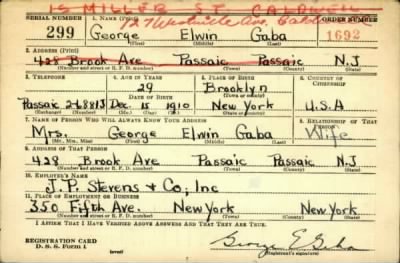 15 MILLER ST. CALDWELL
SERIAL NUMBER 1. NAME (Print) ORDER NUMBER
127 Westville Ave. Caldwell
299 George Elwin Gaba 1692
(First) (Middle) (Last)
2. ADDRESS (Print)
428 Brook Ave Passaic Passaic N.J
(Number and street or R. F. D. number) (Town) (County) (State)
3. TELEPHONE 4. AGE IN YEARS 5. PLACE OF BIRTH 6. COUNTRY OF CITIZENSHIP
29 Brooklyn
DATE OF BIRTH (Town or county)
Passaic 2-68813 Dec. 15 1910 New York U.S.A
(Exchange) (Number) (Mo.) (Day) (Yr.) (State or country)
7. NAME OF PERSON WHO WILL ALWAYS KNOW YOUR ADDRESS 8. RELATIONSHIP OF THAT PERSON
Mrs. George Elwin Gaba Wife
(Mr., Mrs., Miss) (First) (Middle) (Last)
9. ADDRESS OF THAT PERSON
428 Brook Ave Passaic Passaic N.J
(Number and street or R. F. D. number) (Town) (County) (State)
10. EMPLOYER'S NAME
J. P. Stevens & Co, Inc
11. PLACE OF EMPLOYMENT OR BUSINESS
350 Fifth Ave. New York New York
(Number and street or R. F. D. number) (Town) (County) (State)
I AFFIRM THAT I HAVE VERIFIED ABOVE ANSWERS AND THAT THEY ARE TRUE.
REGISTRATION CARD
D. S. S. Form 1 (over) George E Gaba
(Registrant's signature)